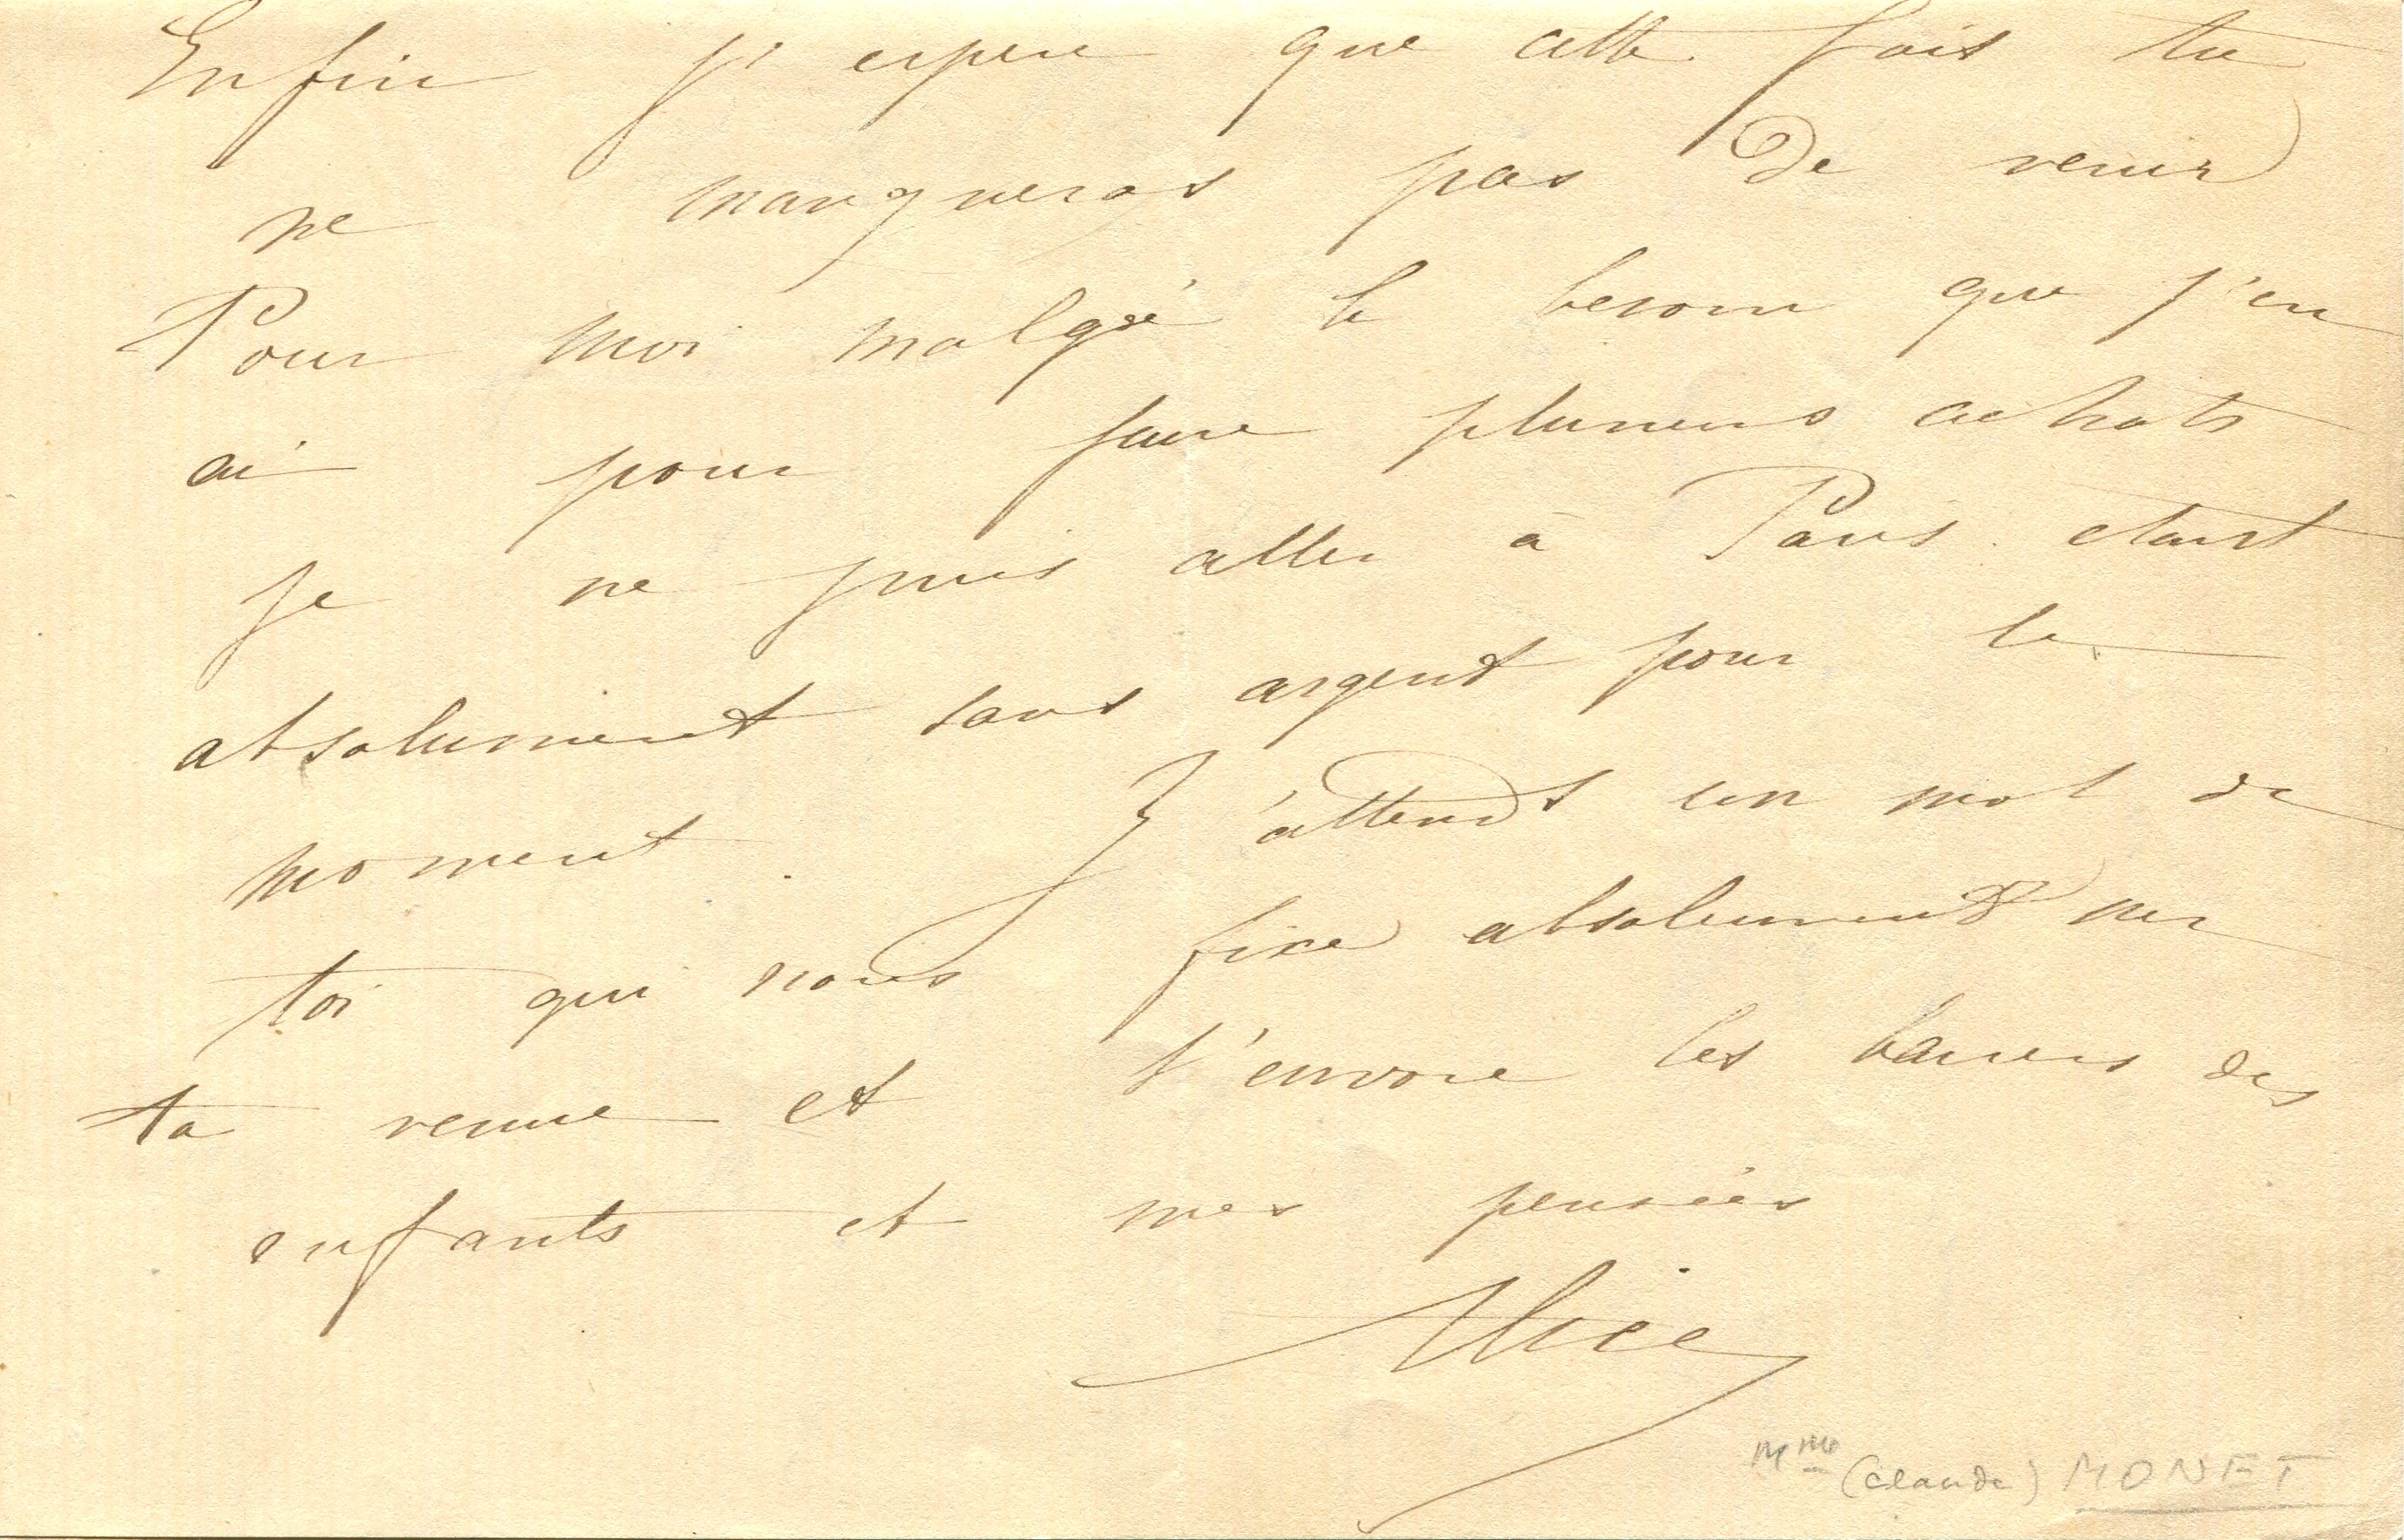 Enfin j'espere que cette fois tu
ne manqueras pas de venir
Pour moi malgré le besoin que j'en
ai pour faire plusieurs achats
je ne puis aller à Paris etant
absolument sans argent pour le
moment. J'attends un mot de
toi qui nous fixe absolument sur
ta venue et t'envoie les baisers des
enfants et mes pensées
Alice
Mme (Claude) MONET